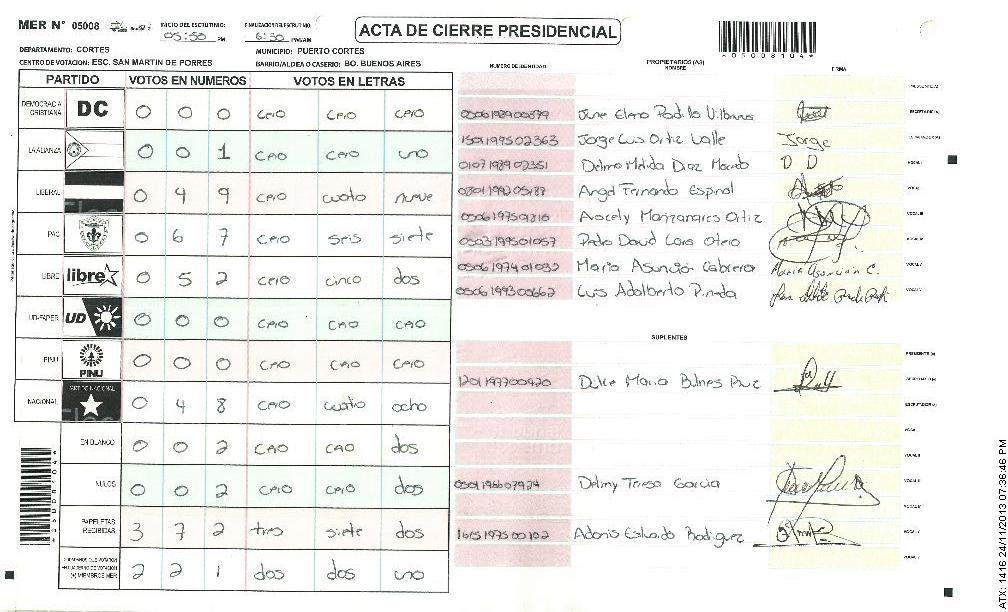 MER N° 05008
INICIO DEL ESCRUTINIO: 05:50 PM
FINALIZACION DEL ESCRUTINIO: 6:30 PM/AM
ACTA DE CIERRE PRESIDENCIAL
*05008104*
DEPARTAMENTO: CORTES
MUNICIPIO: PUERTO CORTES
CENTRO DE VOTACION: ESC. SAN MARTIN DE PORRES
BARRIO/ALDEA O CASERIO: BO. BUENOS AIRES
PARTIDO VOTOS EN NUMEROS VOTOS EN LETRAS
DEMOCRACIA CRISTIANA DC 0 0 0 cero cero cero
LA ALIANZA 0 0 1 cero cero uno
LIBERAL 0 4 9 cero cuatro nueve
PAC 0 6 7 cero seis siete
LIBRE libre 0 5 2 cero cinco dos
UD-FAPER UD 0 0 0 cero cero cero
PINU PINU 0 0 0 cero cero cero
NACIONAL PARTIDO NACIONAL 0 4 8 cero cuatro ocho
EN BLANCO 0 0 2 cero cero dos
NULOS 0 0 2 cero cero dos
PAPELETAS RECIBIDAS 3 7 2 tres siete dos
(+) MIEMBROS MER 2 2 1 dos dos uno
NUMERO DE IDENTIDAD PROPIETARIOS (AS) NOMBRE FIRMA
PRESIDENTE (A)
June Elena Padilla SECRETARIO (A)
1501199502363 Jorge Luis Ortiz Valle Jorge ESCRUTADOR (A)
0107198902351 Delmo Diaz D D VOCAL I
Angel Fernando Espinal
Aracely Manzanares Ortiz VOCAL III
0503199501057 Pedro David Otero
0506197401032 Maria Asuncion Cabrera Maria Asuncion C. VOCAL V
0506199300662 Luis Adalberto Pineda
SUPLENTES
PRESIDENTE (A)
1201197700920 Dulce Maria Bulnes SECRETARIO (A)
ESCRUTADOR (A)
VOCAL I
VOCAL II
0501198607924 Delmy Teresa Garcia
Adonis Estuardo Rodriguez
ATX: 1416 24/11/2013 07:36:46 PM